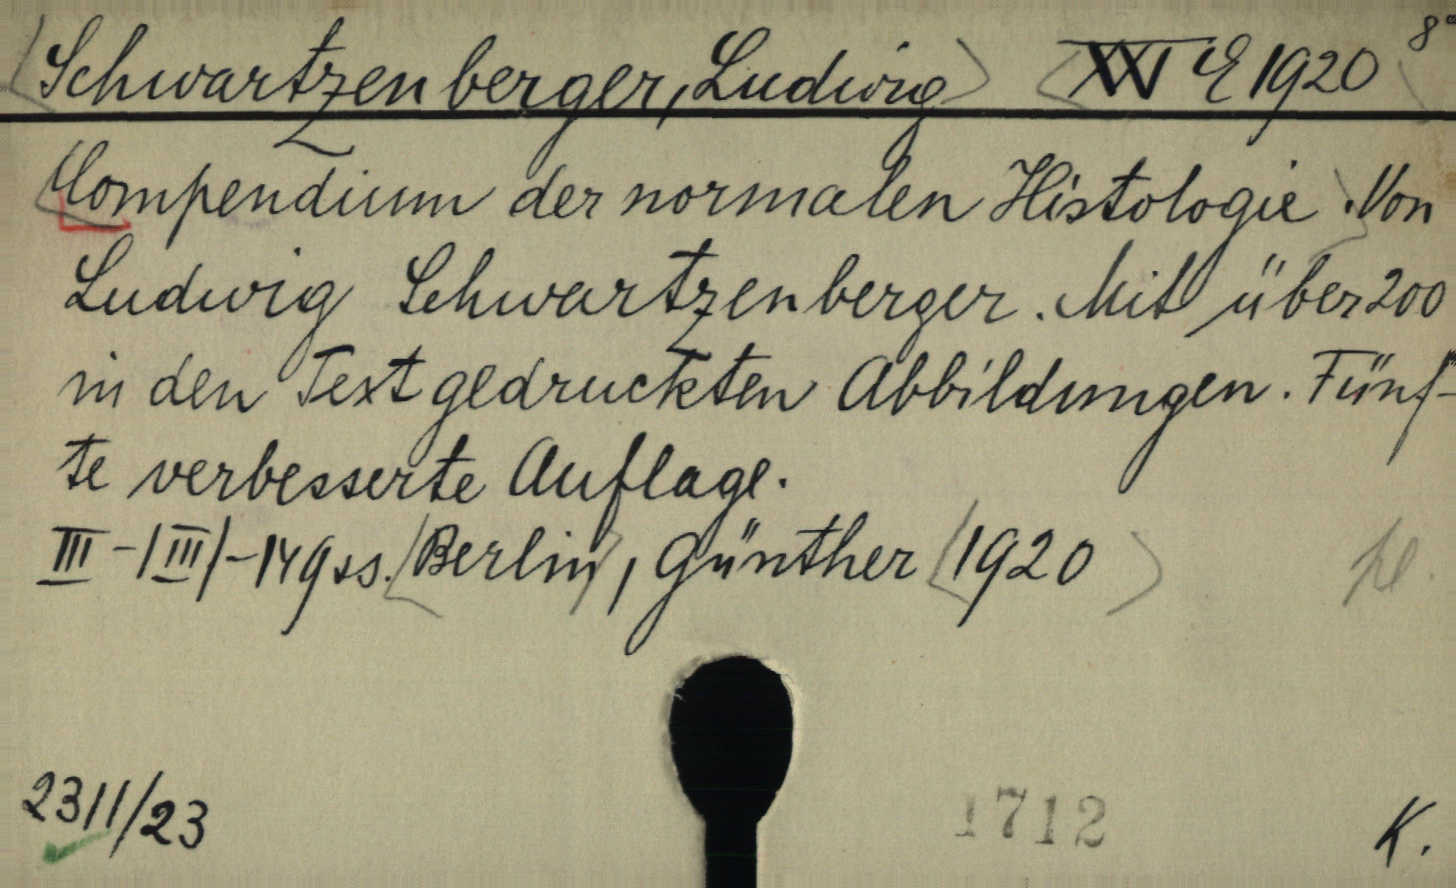 Schwartzenberger, Ludwig XV E 1920 8°
Compendium der normalen Histologie. Von
Ludwig Schwartzenberger. Mit über 200
in den Text gedruckten Abbildungen. Fünf-
te verbesserte Auflage.
III-|III|-149 ss. Berlin, Günther 1920
pl.
2311/23
1712
K.